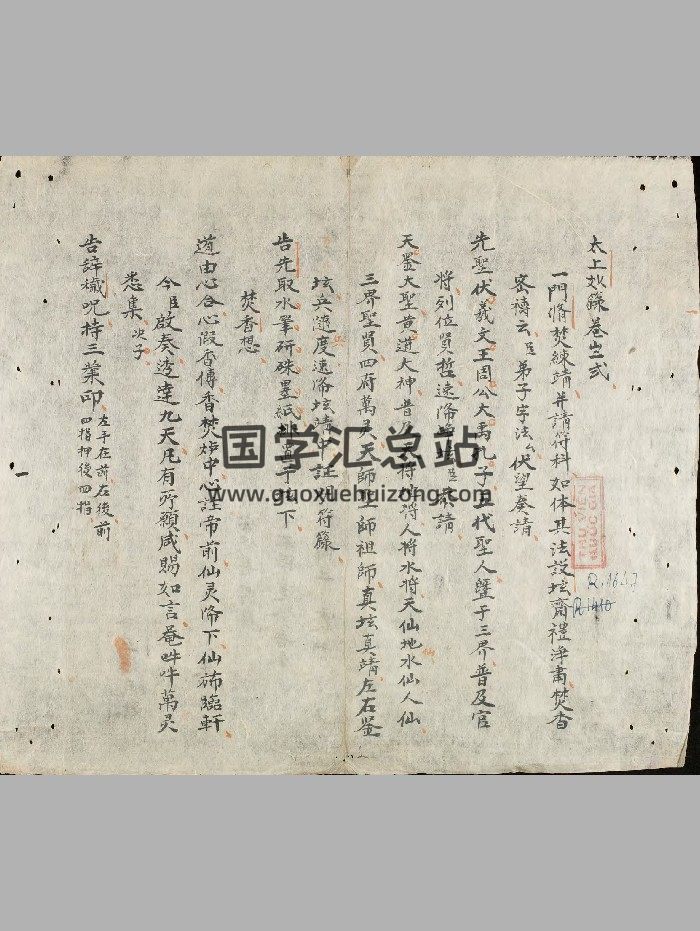 太上奻籙卷山三式
一門脩焚練靖并請符科如体其法設坛齋禮浄肅焚香
密禱云臣弟子字法厶伏望奏請
先聖伏羲文王周公大禹孔子五代聖人曁于三界普及官
将列位賢哲速降
天蓬大聖黄道大神普及天将地将人将水将天仙地水仙人仙
三界聖賢四府萬灵天師聖師祖師真坛真靖左右鉴
坛兵速度速降坛靖中証明符籙
告先取水筆研硃墨紙排置于下
焚香想
道由心合心假香傳香焚炉中心注帝前仙灵降下仙斾臨軒
今臣啟奏逹達九天凡有所願咸賜如言菴吽吽萬灵
悉集次子
告辞穢呪持三業印左手在前右後前
四指押後四指
国学汇总站
www.guoxuehuizong.com
THƯ VIỆN
QUỐC GIA
R.1637